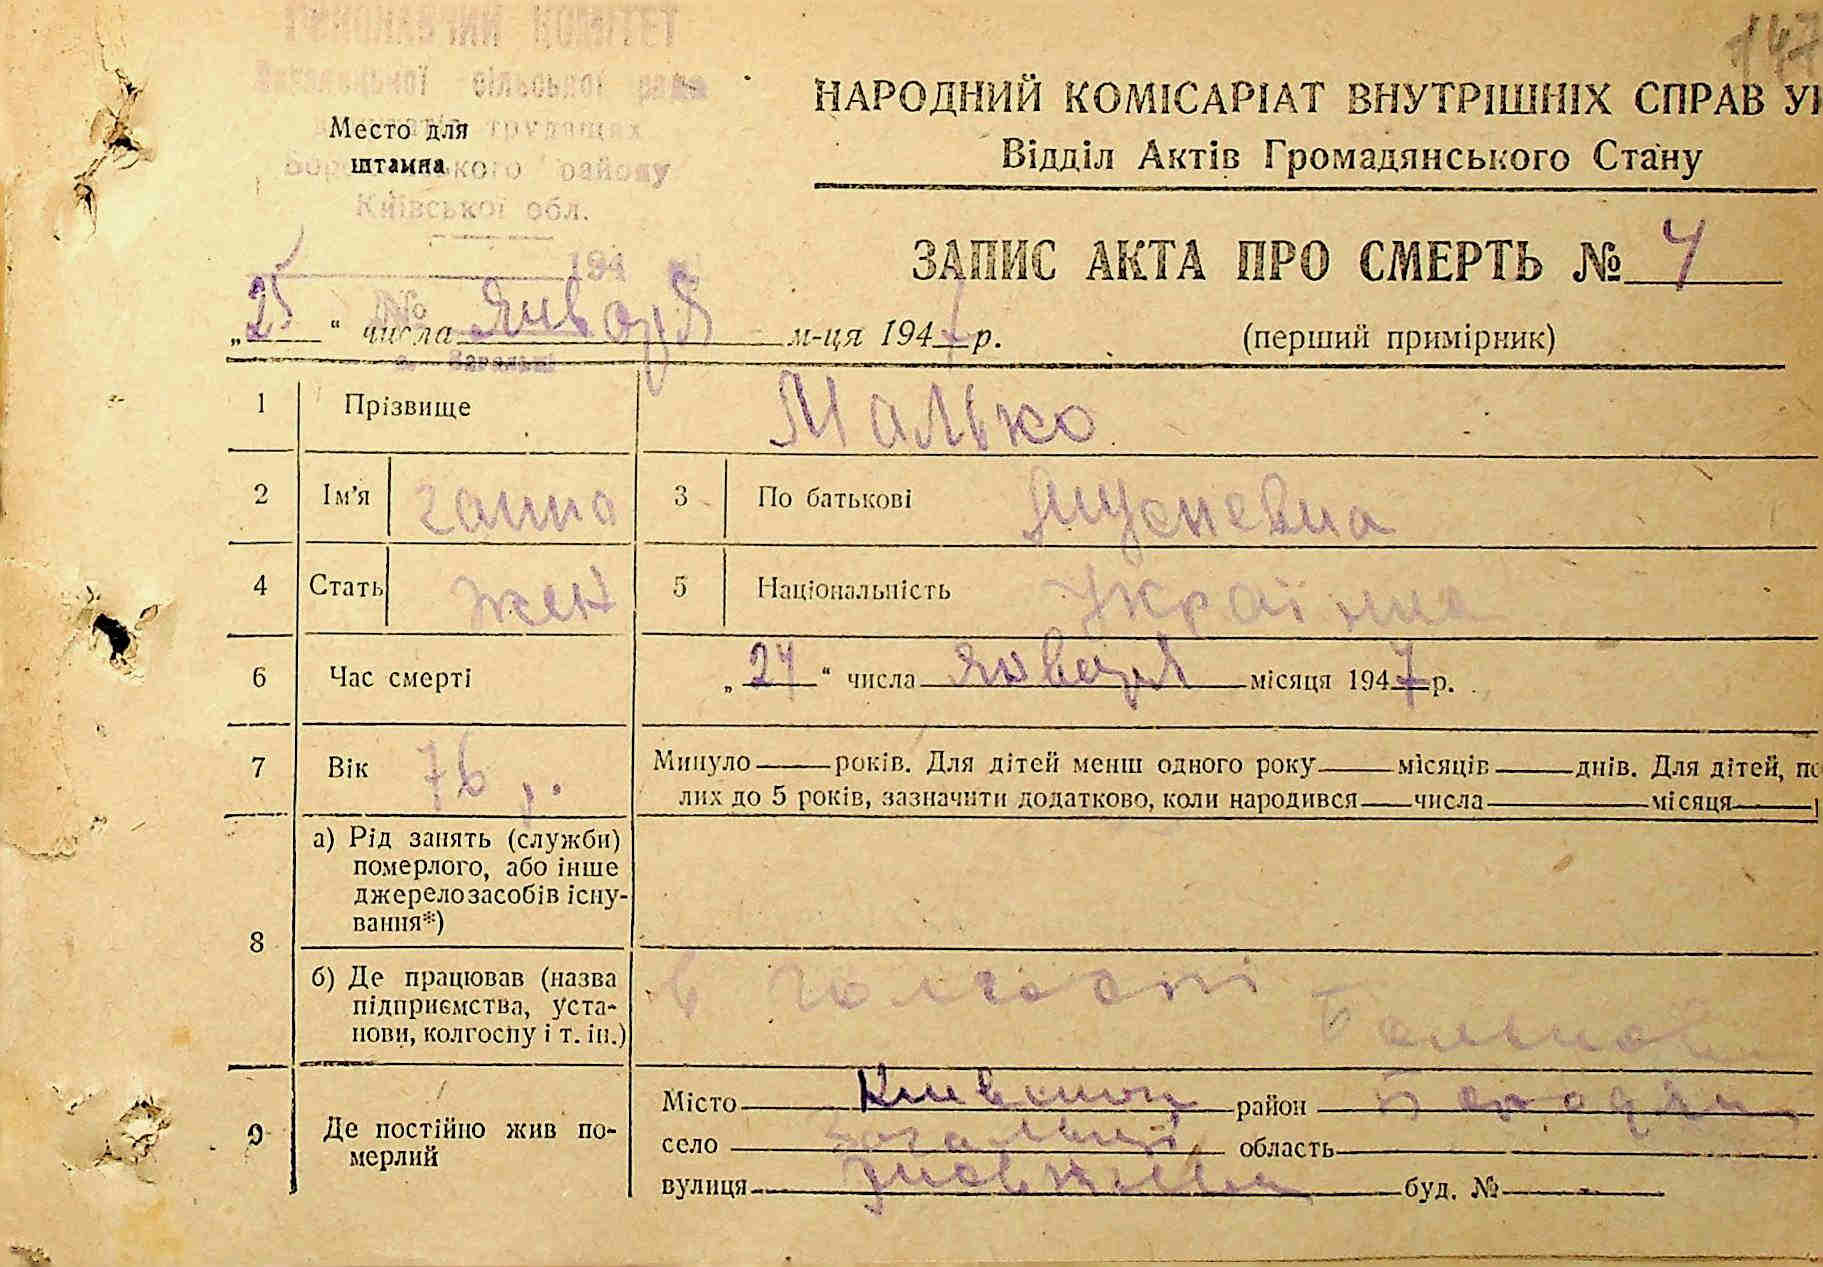 147
ВИКОНАВЧИЙ КОМІТЕТ
Загальської сільської ради
депутатів трудящих
Бородянського району
Київської обл.
194
№
с. Загальці
Место для
штампа
НАРОДНИЙ КОМІСАРІАТ ВНУТРІШНІХ СПРАВ
Відділ Актів Громадянського Стану
ЗАПИС АКТА ПРО СМЕРТЬ №
„25“ числа Января м-ця 1947 р.
(перший примірник)
1 Прізвище Малько
2 Ім'я ганна 3 По батькові
4 Стать жен 5 Національність Українка
6 Час смерті „24“ числа Января місяця 1947 р.
7 Вік 76 р. Минуло років. Для дітей менш одного року місяців днів. Для дітей,
лих до 5 років, зазначити додатково, коли народився числа місяця
8 а) Рід занять (служби)
померлого, або інше
джерело засобів існу-
вання*)
б) Де працював (назва
підприємства, уста-
нови, колгоспу і т. ін.)
в
9 Де постійно жив по-
мерлий
Місто район
село Загальці область
вулиця буд. №